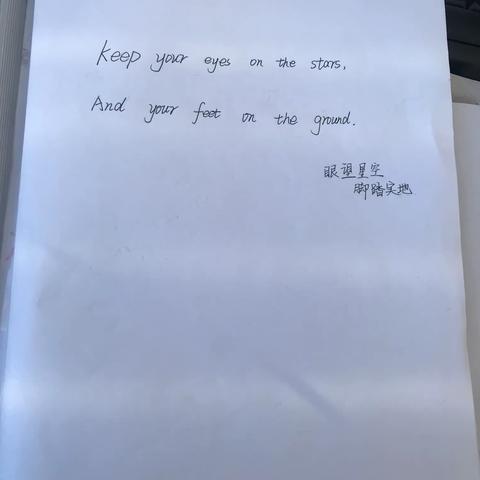 Keep your eyes on the stars,
And your feet on the ground.
眼望星空
脚踏实地